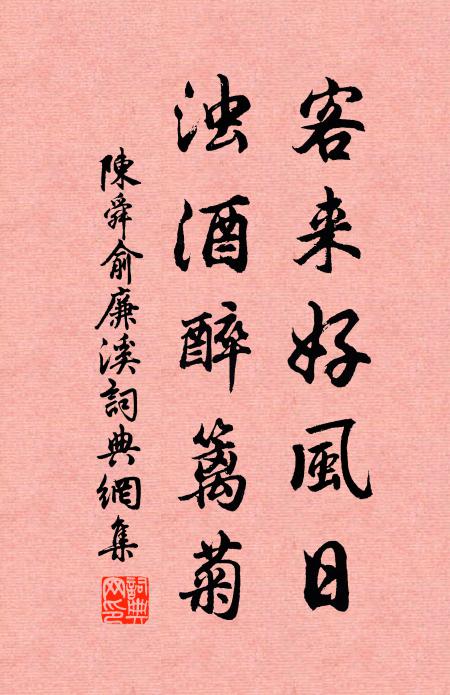 客来好風日
浊酒醉籬菊
陳舜俞廉溪詞典網集
詞典網印